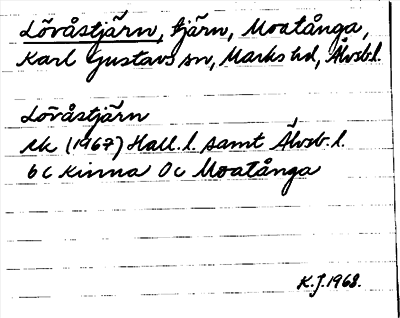 Lövåstjärn, tjärn, Moatånga,
Karl Gustavs sn, Marks hd, Älvsb.l.
Lövåstjärn
ek (1967) Hall. l. samt Älvsb. l.
6c Kinna 0c Moatånga
K.J. 1968.